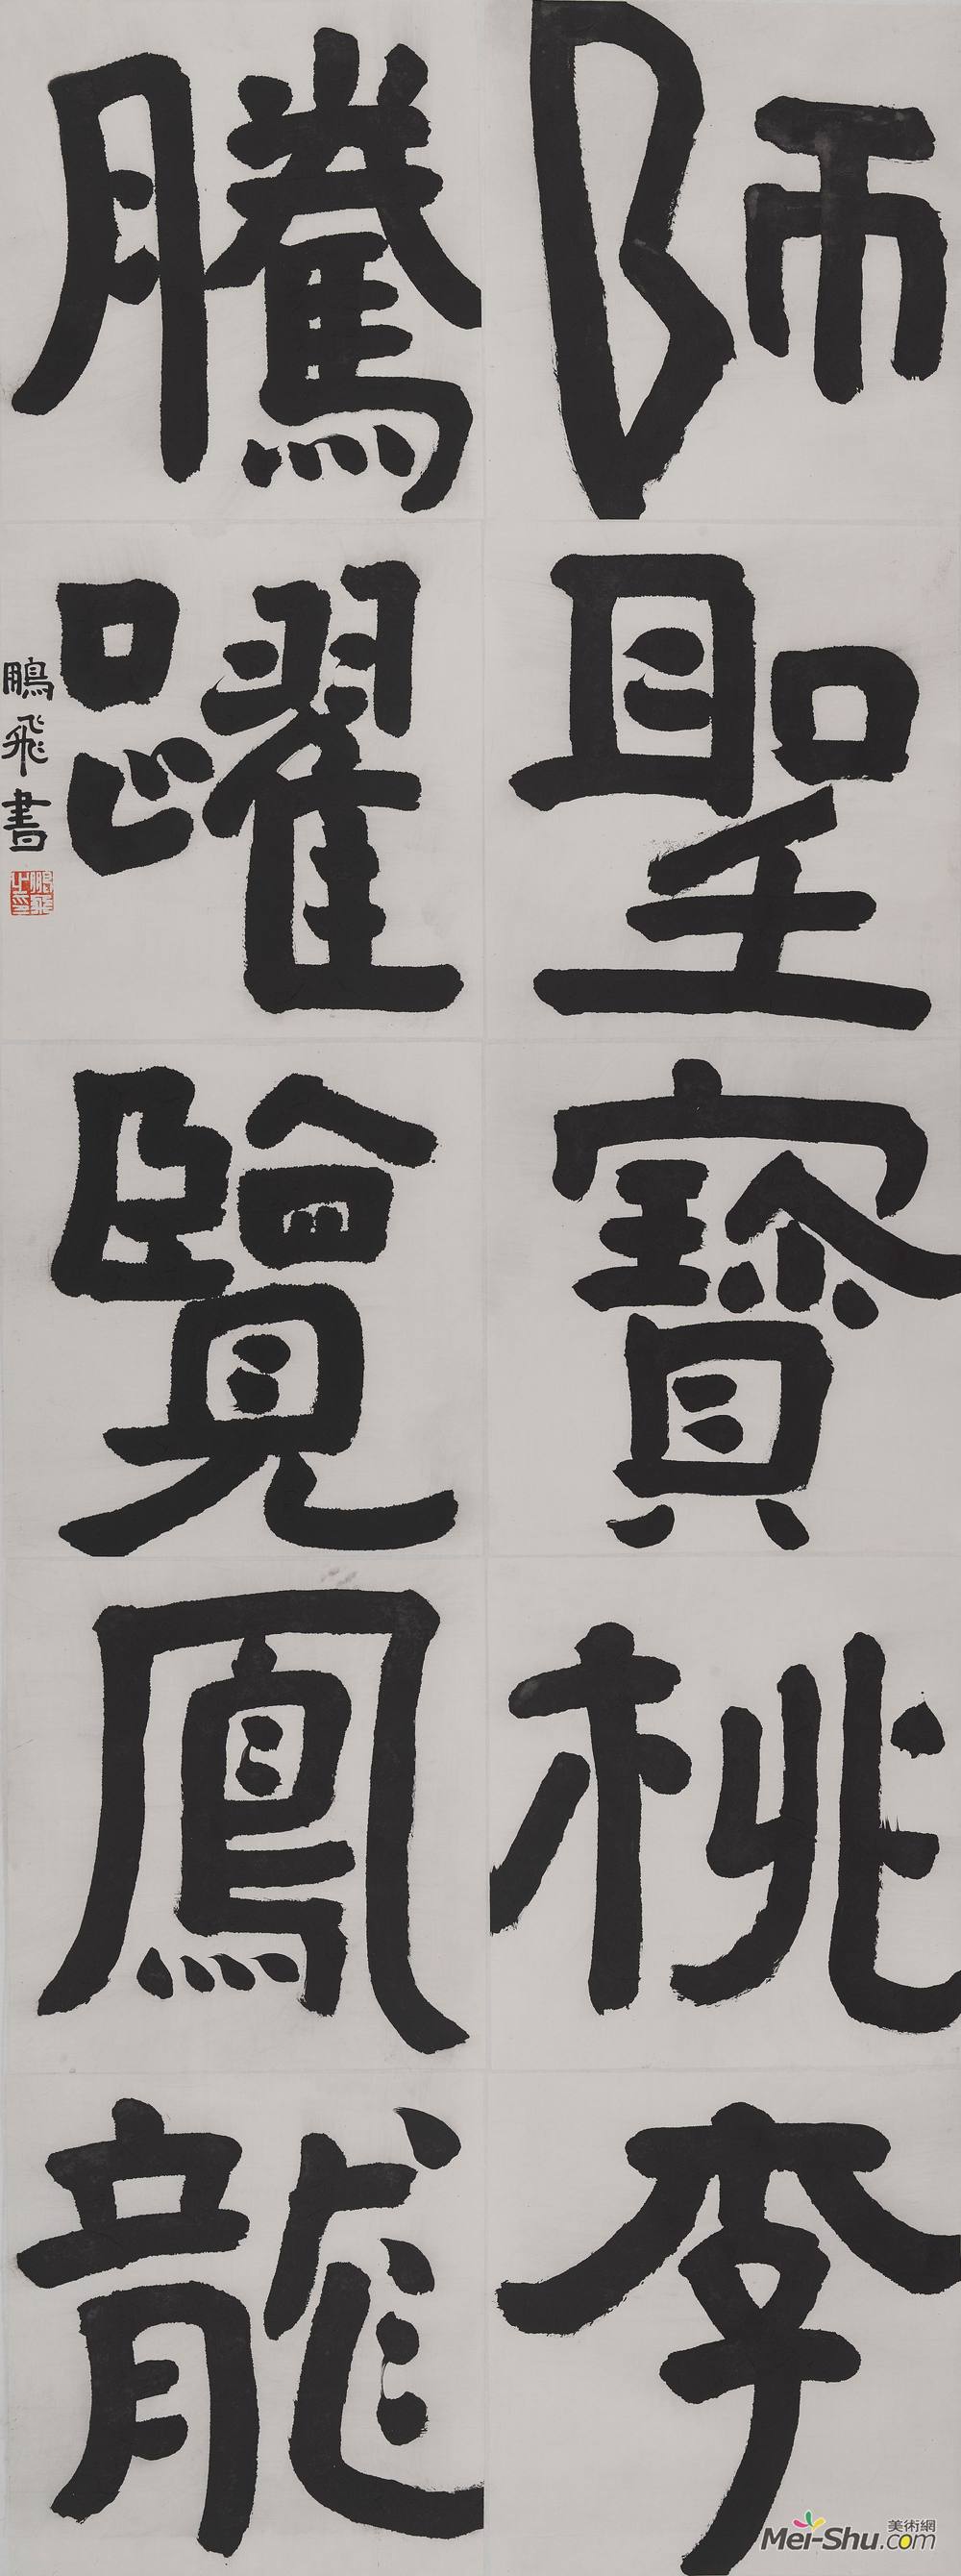 師聖寶桃李
騰躍覽鳳龍
鵬飛書
鵬飛之印
美術網
Mei-Shu.com